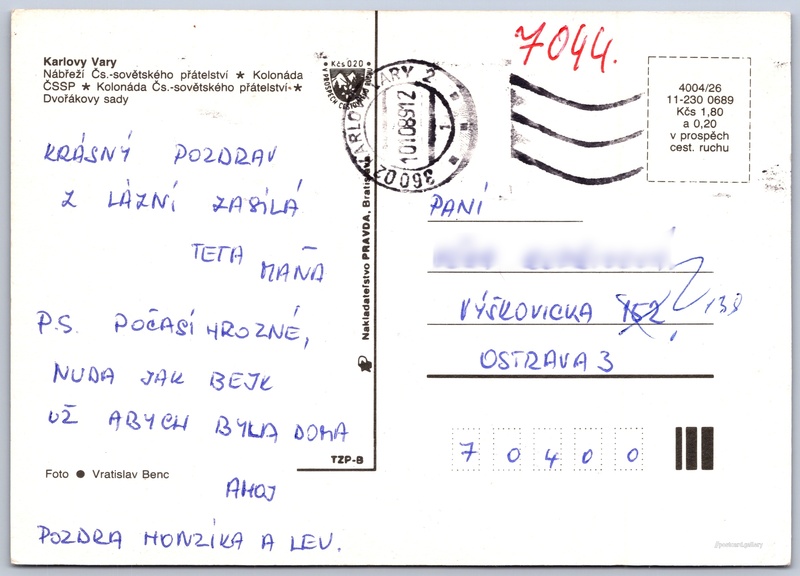 Karlovy Vary
Nábřeží Čs.-sovětského přátelství ★ Kolonáda
ČSSP ★ Kolonáda Čs.-sovětského přátelství ★
Dvořákovy sady
KRÁSNÝ POZDRAV
Z LÁZNÍ ZASÍLÁ
TETA MAŇA
P.S. POČASÍ HROZNÉ,
NUDA JAK BEJK
UŽ ABYCH BYLA DOMA
AHOJ
POZDRA HONZÍKA A LEV.
Foto ● Vratislav Benc
TZP-B
Nakladatelství PRAVDA, Bratislava
Kčs 020
KARLOVY VARY 2
10108912
1
36002
7044.
4004/26
11-230 0689
Kčs 1,80
a 0,20
v prospěch
cest. ruchu
PANÍ
VÝŠKOVICKA 152 138
OSTRAVA 3
7 0 4 0 0
//postcard.gallery